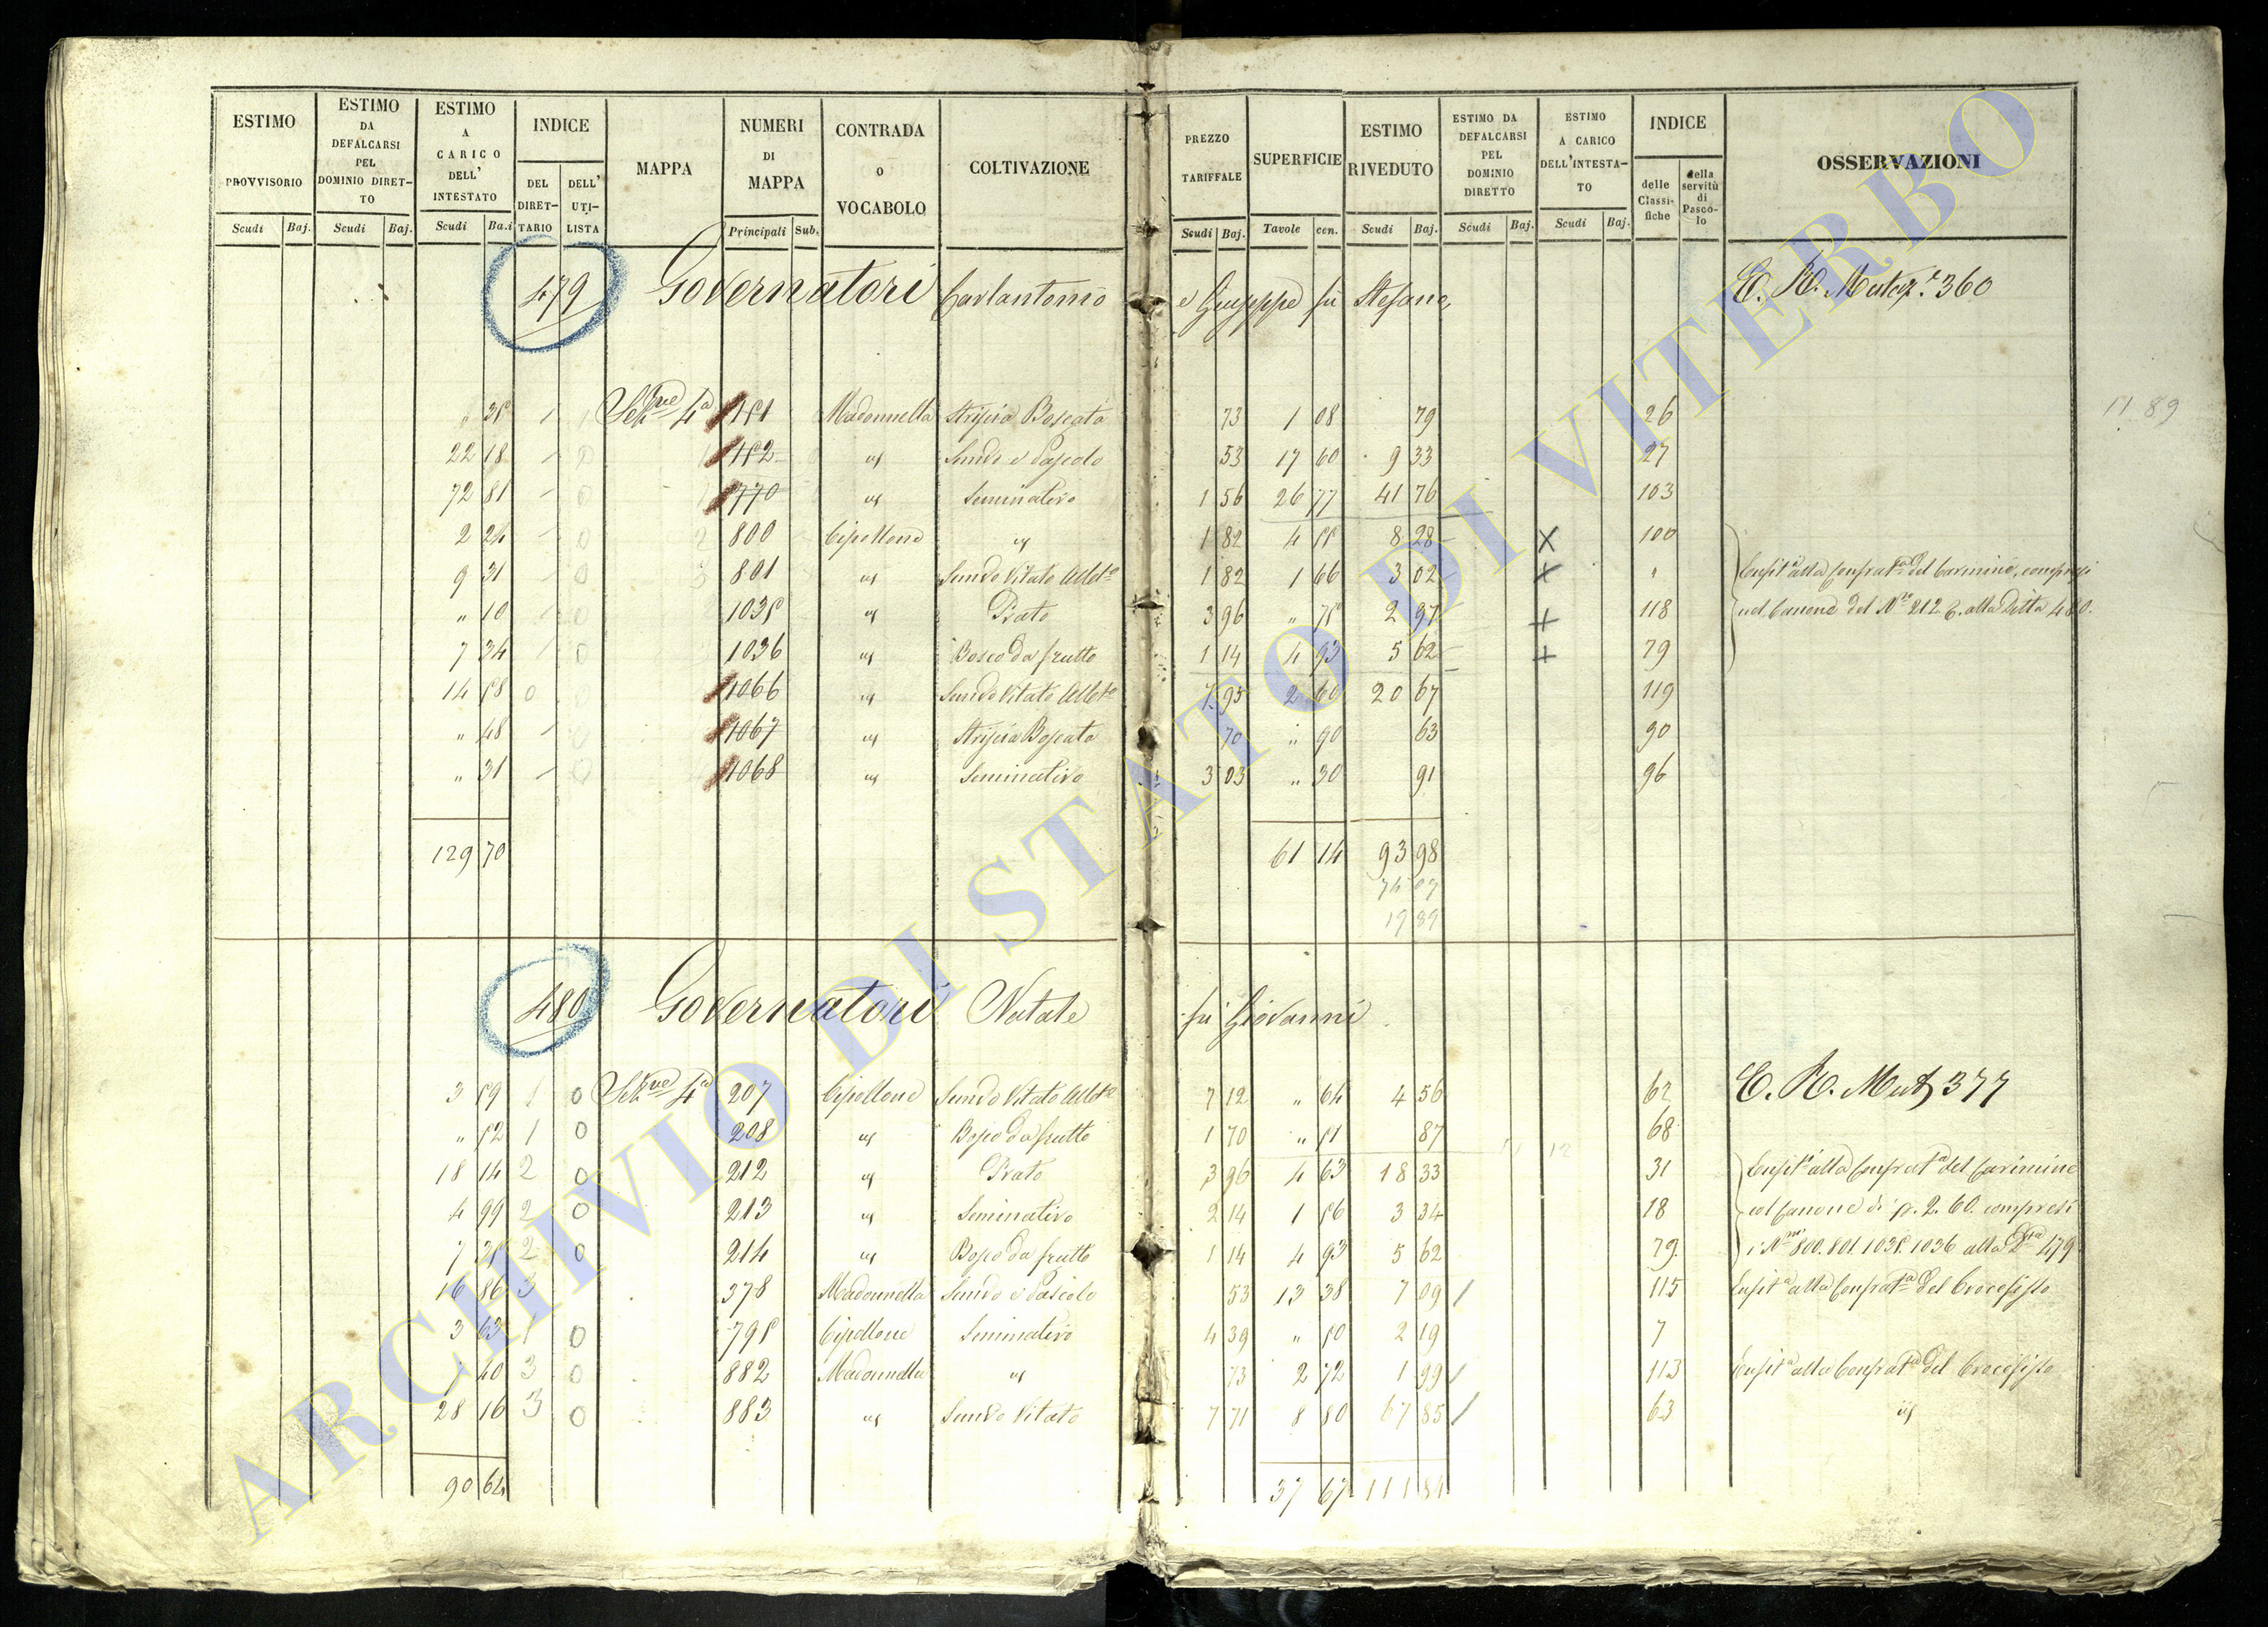 ESTIMO PROVVISORIO
ESTIMO DA DEFALCARSI PEL DOMINIO DIRETTO
ESTIMO A CARICO DELL' INTESTATO
INDICE
DEL DIRETTARIO
DELL' UTILISTA
MAPPA
NUMERI DI MAPPA
CONTRADA O VOCABOLO
COLTIVAZIONE
PREZZO TARIFFALE
SUPERFICIE
ESTIMO RIVEDUTO
ESTIMO DA DEFALCARSI PEL DOMINIO DIRETTO
ESTIMO A CARICO DELL'INTESTATO
INDICE
delle Classifiche
della servitù di Pascolo
OSSERVAZIONI
Scudi Baj. Scudi Baj. Scudi Ba.i Principali Sub. Scudi Baj. Tavole cen. Scudi Baj. Scudi Baj. Scudi Baj.
479 Governatori Carlantonio e Giuseppe fu Stefano
" 35 1 Sez.ne 4a 151 Madonnella Striscia Boscata 73 1 08 79 26
22 18 152 Semvo e Pascolo 53 17 60 9 33 27
72 81 770 Seminativo 1 56 26 77 41 76 103
2 24 800 Cipollone 1 82 4 55 8 28 X 100
9 31 801 Semvo Vitato 1 82 1 66 3 02 X "
" 10 1035 Prato 3 96 " 75 2 97 + 118
7 34 1036 Bosco da frutto 1 14 4 93 5 62 + 79
14 58 0 1066 Semvo Vitato 7 95 2 60 20 67 119
" 48 1067 Striscia Boscata 70 " 90 63 90
" 31 1068 Seminativo 3 03 " 30 91 96
Confrat.a del Carmine, compresi
nel Canone del N.ro 212. alla Ditta 480.
129 70 61 14 93 98
74 07
19 89
480 Governatori Natale fu Giovanni
3 59 1 0 Sez.ne 4a 207 Cipollone Semvo Vitato 7 12 " 64 4 56 62
" 52 1 0 208 Bosco da frutto 1 70 " 51 87 68
18 14 2 0 212 Prato 3 96 4 63 18 33 31 alla Confrat.a del Carmine
4 99 2 0 213 Seminativo 2 14 1 56 3 34 18 col Canone di 2. 60. compresi
7 35 2 0 214 Bosco da frutto 1 14 4 93 5 62 79 i N.ri 800. 801. 1035. 1036 alla 479
16 86 3 378 Madonnella Semvo e Pascolo 53 13 38 7 09 115 alla Confrat.a del Crocefisso
3 63 1 0 795 Cipollone Seminativo 4 39 " 50 2 19 7
7 40 3 0 882 Madonnella 73 2 72 1 99 113 alla Confrat.a del Crocefisso
28 16 3 0 883 Semvo Vitato 7 71 8 80 67 85 63
90 64 37 67 111 84
360
377
ARCHIVIO DI STATO DI VITERBO